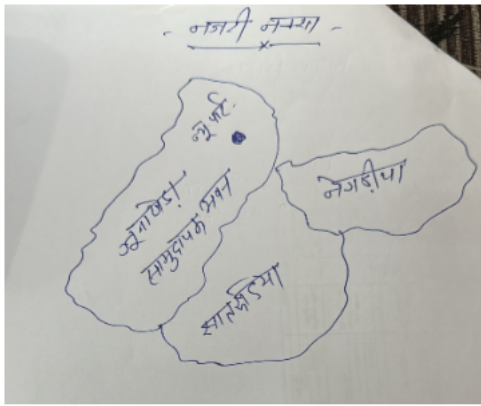 - नजरी नक्शा -
न्यू पार्ट
जूनाखेडा़
सामुदायक भवन
नेगडी़या
सातखेडिया